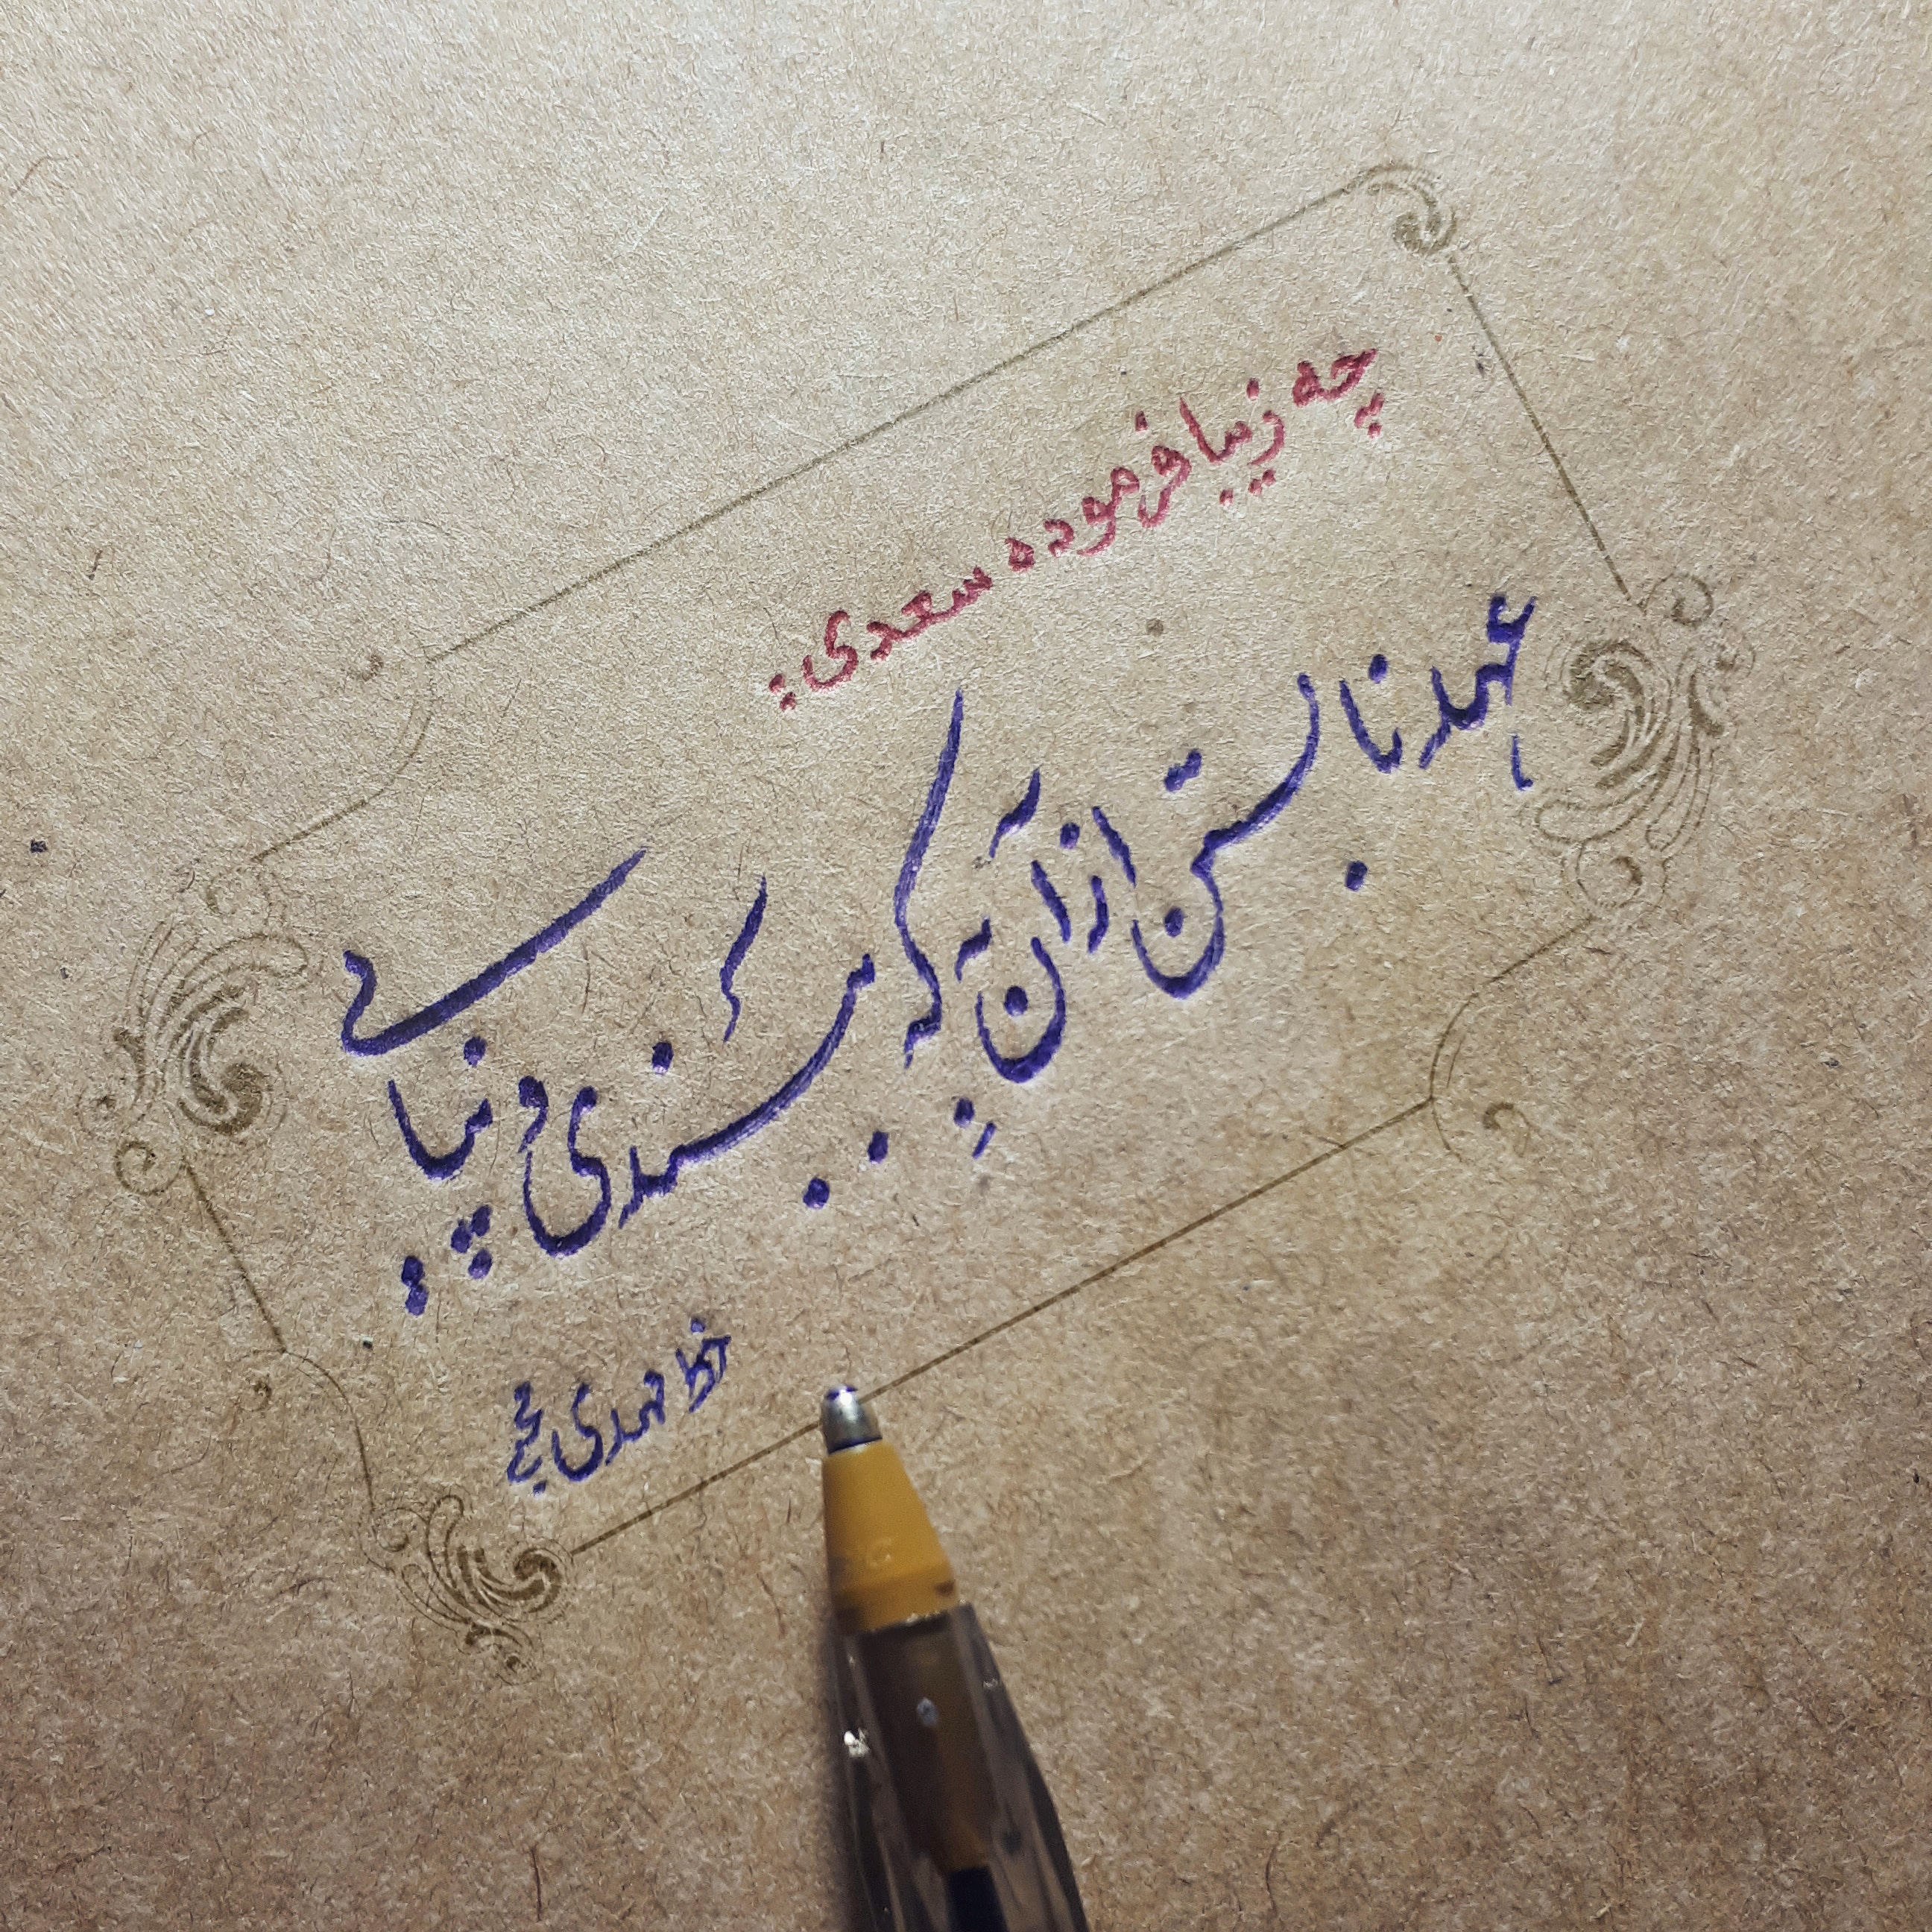 چه زیبا فرموده سعدی:
عهد نابستن از آن بِه که ببندی و نپایی
خط مهدی